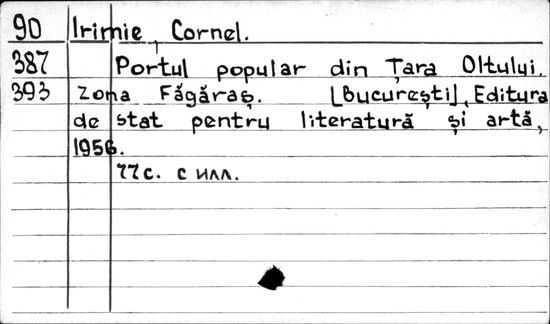 90 Irimie, Cornel.
387 Portul popular din Țara Oltului.
393 Zona Făgăraș. [București], Editura
de stat pentru literatură și artă,
1956.
77 с. с илл.